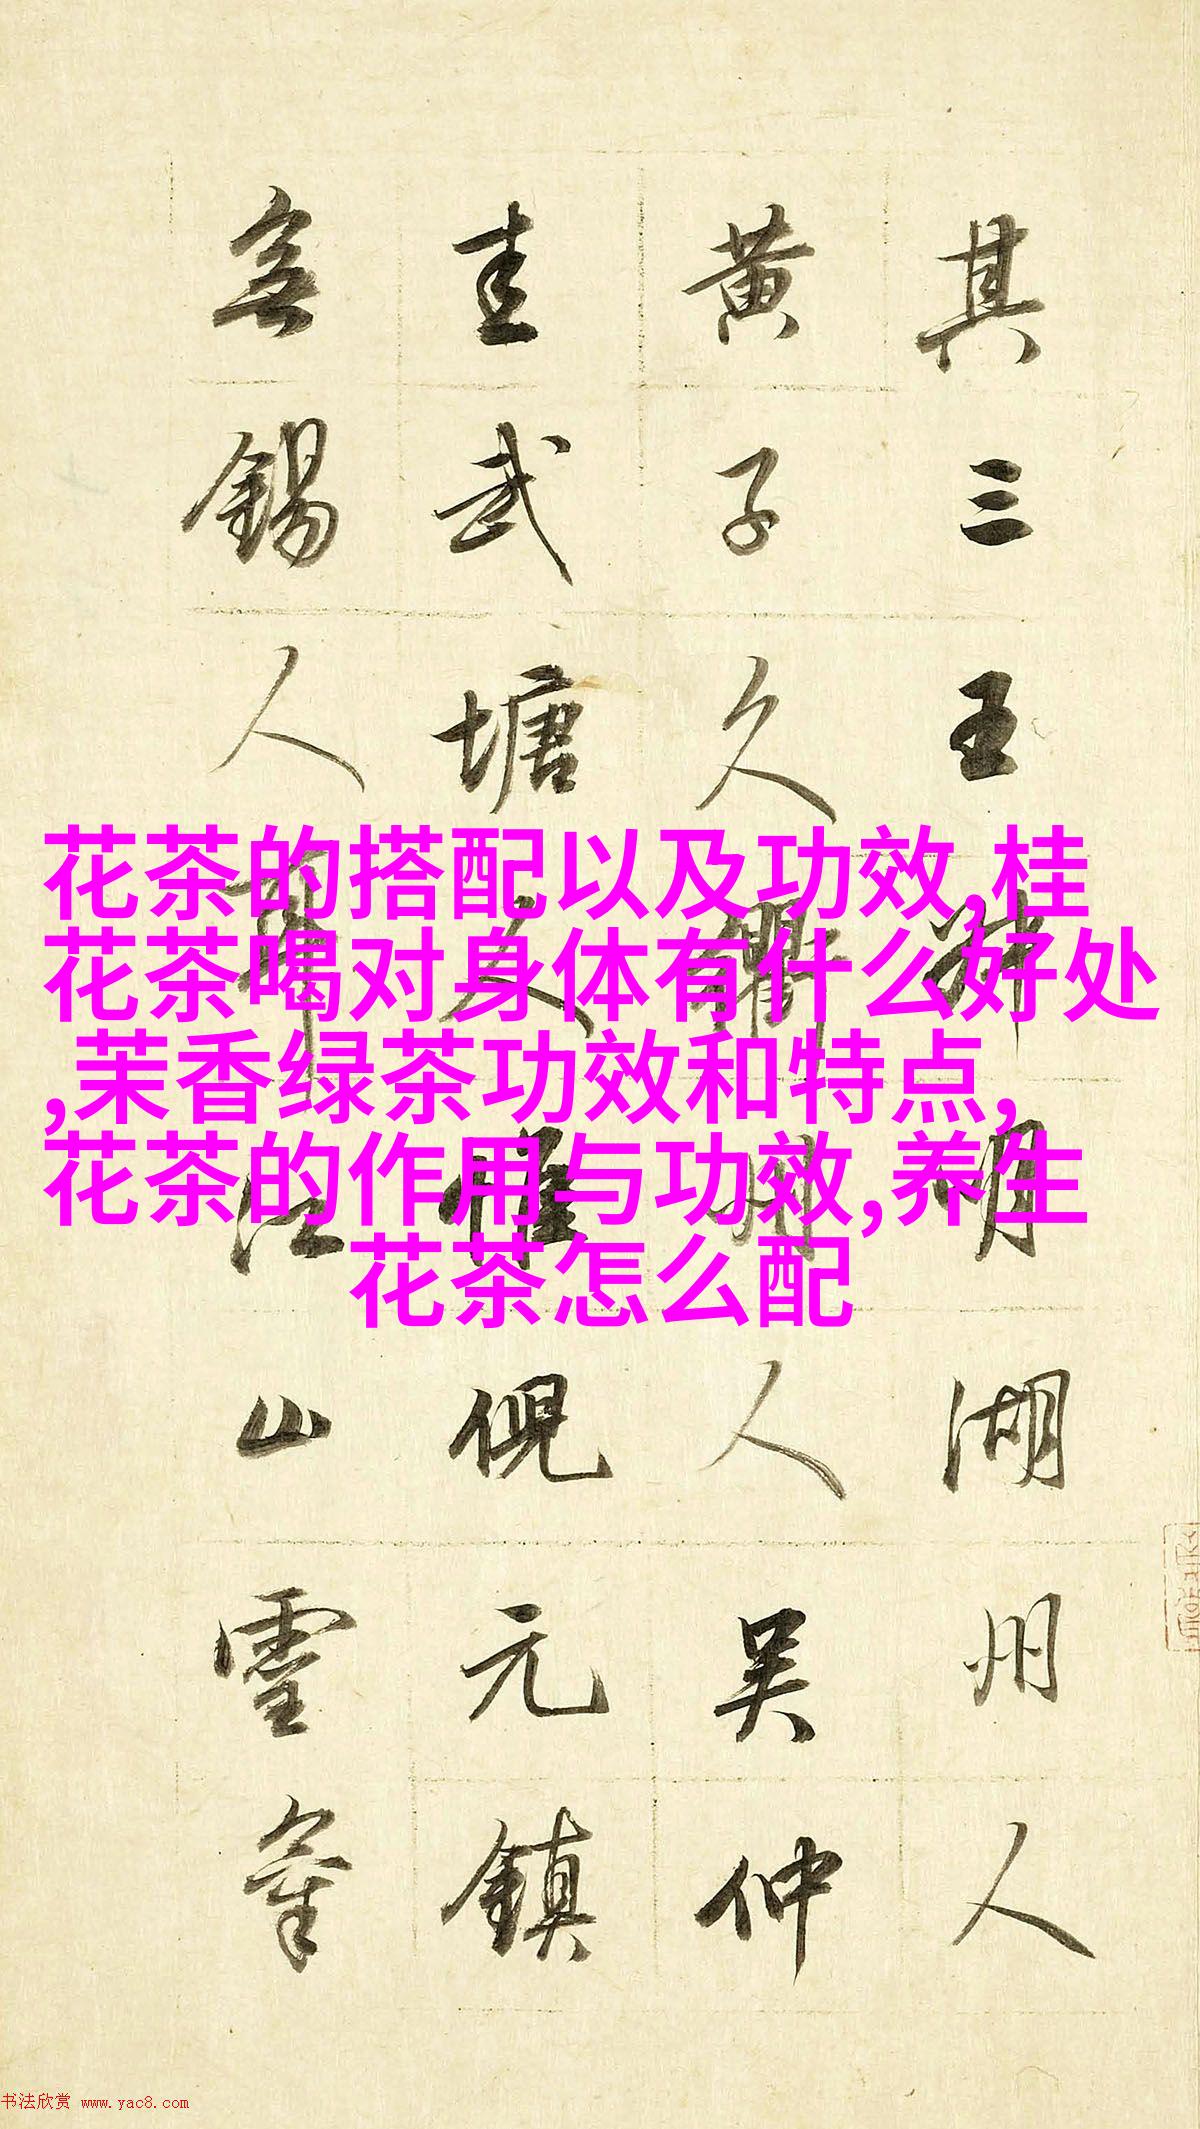 其三王叔明湖州人
黄子久衢州人吳仲
圭武塘人惟倪元鎮
無錫人江山靈
花茶的搭配以及功效,桂
花茶喝对身体有什么好处
,茉香绿茶功效和特点,
花茶的作用与功效,养生
花茶怎么配
书法欣赏 www.yac8.com